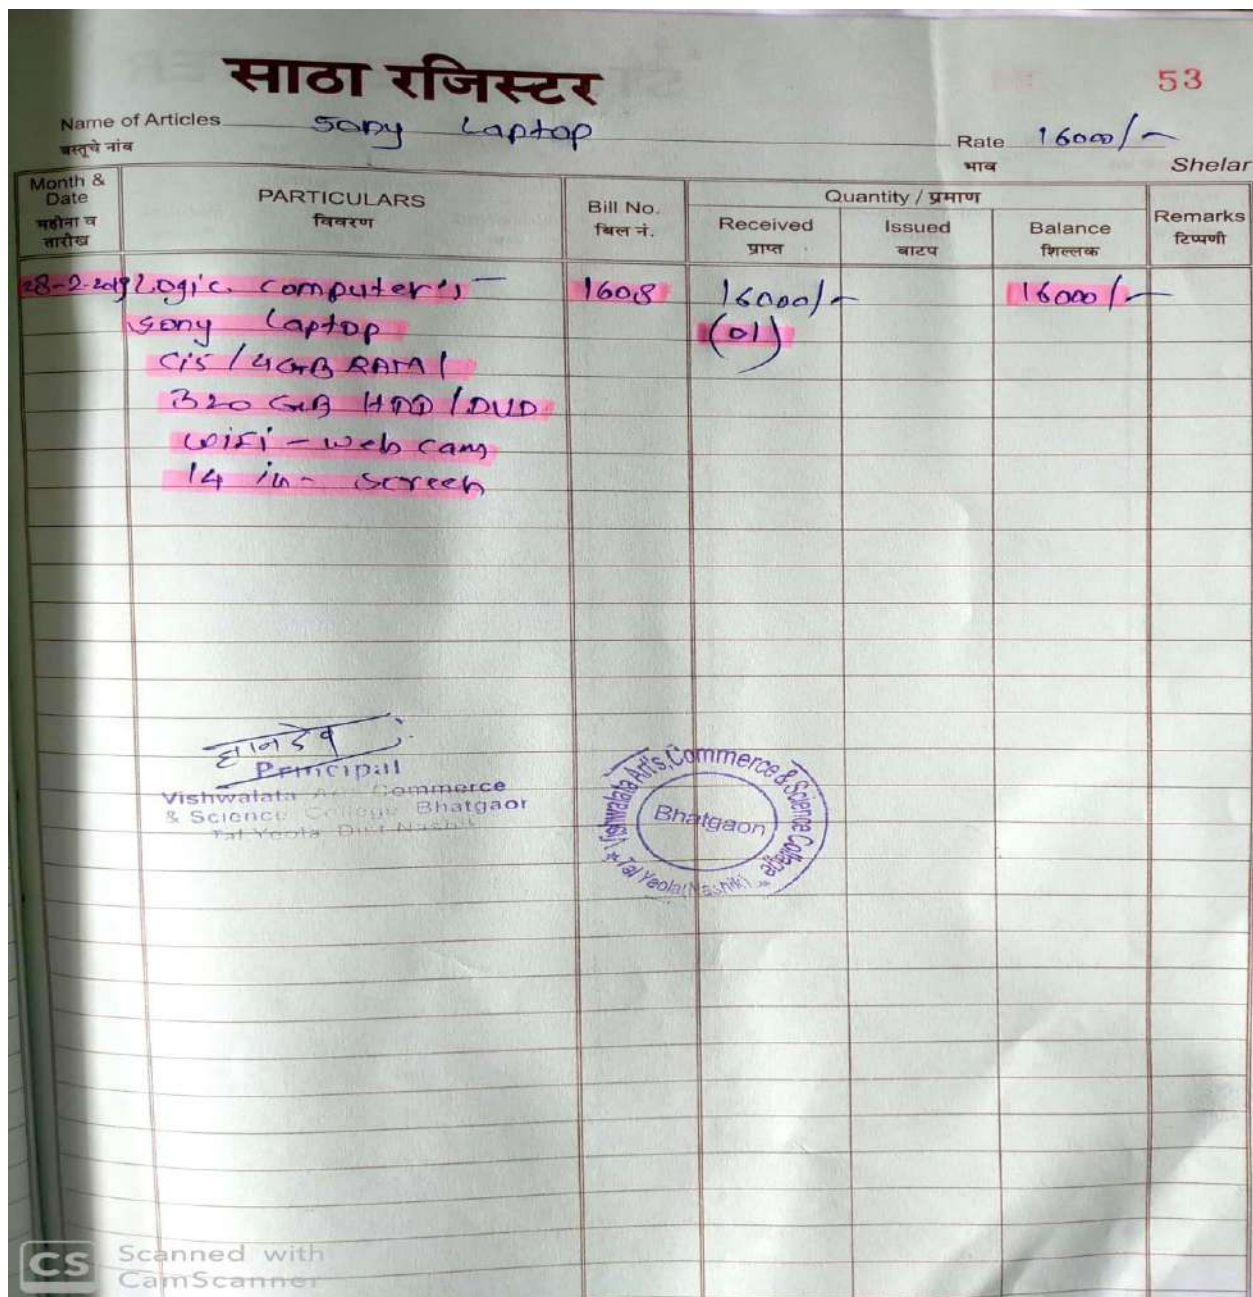 साठा रजिस्टर
53
Name of Articles Sony Laptop
वस्तूचे नांव
Rate 16000/-
भाव
Shelar
Month & Date
महीना व तारीख
PARTICULARS
विवरण
Bill No.
बिल नं.
Quantity / प्रमाण
Received
प्राप्त
Issued
बाटप
Balance
शिल्लक
Remarks
टिप्पणी
28-2-2019 Logic computer's - 1608 16000/- 16000/-
Sony Laptop (01)
Ci5 / 4GB RAM /
320 GB HDD / DVD
WiFi - web cam
14 in - screen
Principal
Vishwalata Commerce
& Science College Bhatgaon
Tal Yeola Dist Nashik
Vishwalata Art's, Commerce & Science College
Bhatgaon
Tal Yeola (Nashik)
CS Scanned with
CamScanner